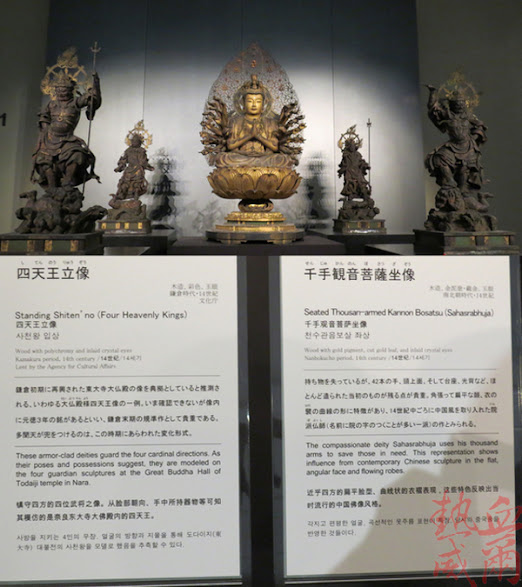 し てん のう りゅう ぞう
四天王立像
木造、彩色、玉眼
鎌倉時代・14世紀
文化庁
Standing Shiten'no (Four Heavenly Kings)
四天王立像
사천왕 입상
Wood with polychromy and inlaid crystal eyes
Kamakura period, 14th century / 14世纪 / 14세기
Lent by the Agency for Cultural Affairs
鎌倉初期に再興された東大寺大仏殿の像を典拠としていると推測さ
れる、いわゆる大仏殿様四天王像の一例。いま確認できないが像内
に元徳3年の銘があるといい、鎌倉末期の規準作として貴重である。
多聞天が兜をつけるのは、この時期にあらわれた変化形式。
These armor-clad deities guard the four cardinal directions. As
their poses and possessions suggest, they are modeled on
the four guardian sculptures at the Great Buddha Hall of
Todaiji temple in Nara.
镇守四方的四位武将之像。从脸部朝向，手中所持器物等可知
其模仿的是奈良东大寺大佛殿内的四天王。
사방을 지키는 4인의 무장. 얼굴의 방향과 지물을 통해 도다이지(東
大寺) 대불전의 사천왕을 모델로 했음을 추측할 수 있다.
せん じゅ かん のん ぼ さつ ざ ぞう
千手観音菩薩坐像
木造、金泥塗・截金、玉眼
南北朝時代・14世紀
Seated Thousan-armed Kannon Bosatsu (Sahasrabhuja)
千手观音菩萨坐像
천수관음보살 좌상
Wood with gold pigment, cut gold leaf, and inlaid crystal eyes
Nanbokucho period, 14th century / 14世纪 / 14세기
持ち物を失っているが、42本の手、頭上面、そして台座、光背など、ほ
とんど造られた当初のものが残る点が貴重。角張って扁平な顔、衣の
襞の曲線の形に特徴があり、14世紀中ごろに中国風を取り入れた院
派仏師（名前に院の字のつくことが多い一派）の作とみられる。
The compassionate deity Sahasrabhuja uses his thousand
arms to save those in need. This representation shows
influence from contemporary Chinese sculpture in the flat,
angular face and flowing robes.
近乎四方的扁平脸型，曲线状的衣褶表现，这些特色反映出当
时流行的中国佛像风格。
각지고 편평한 얼굴, 곡선적인 옷주름 표현이
반영한 것들이다.
热血
威爾
1